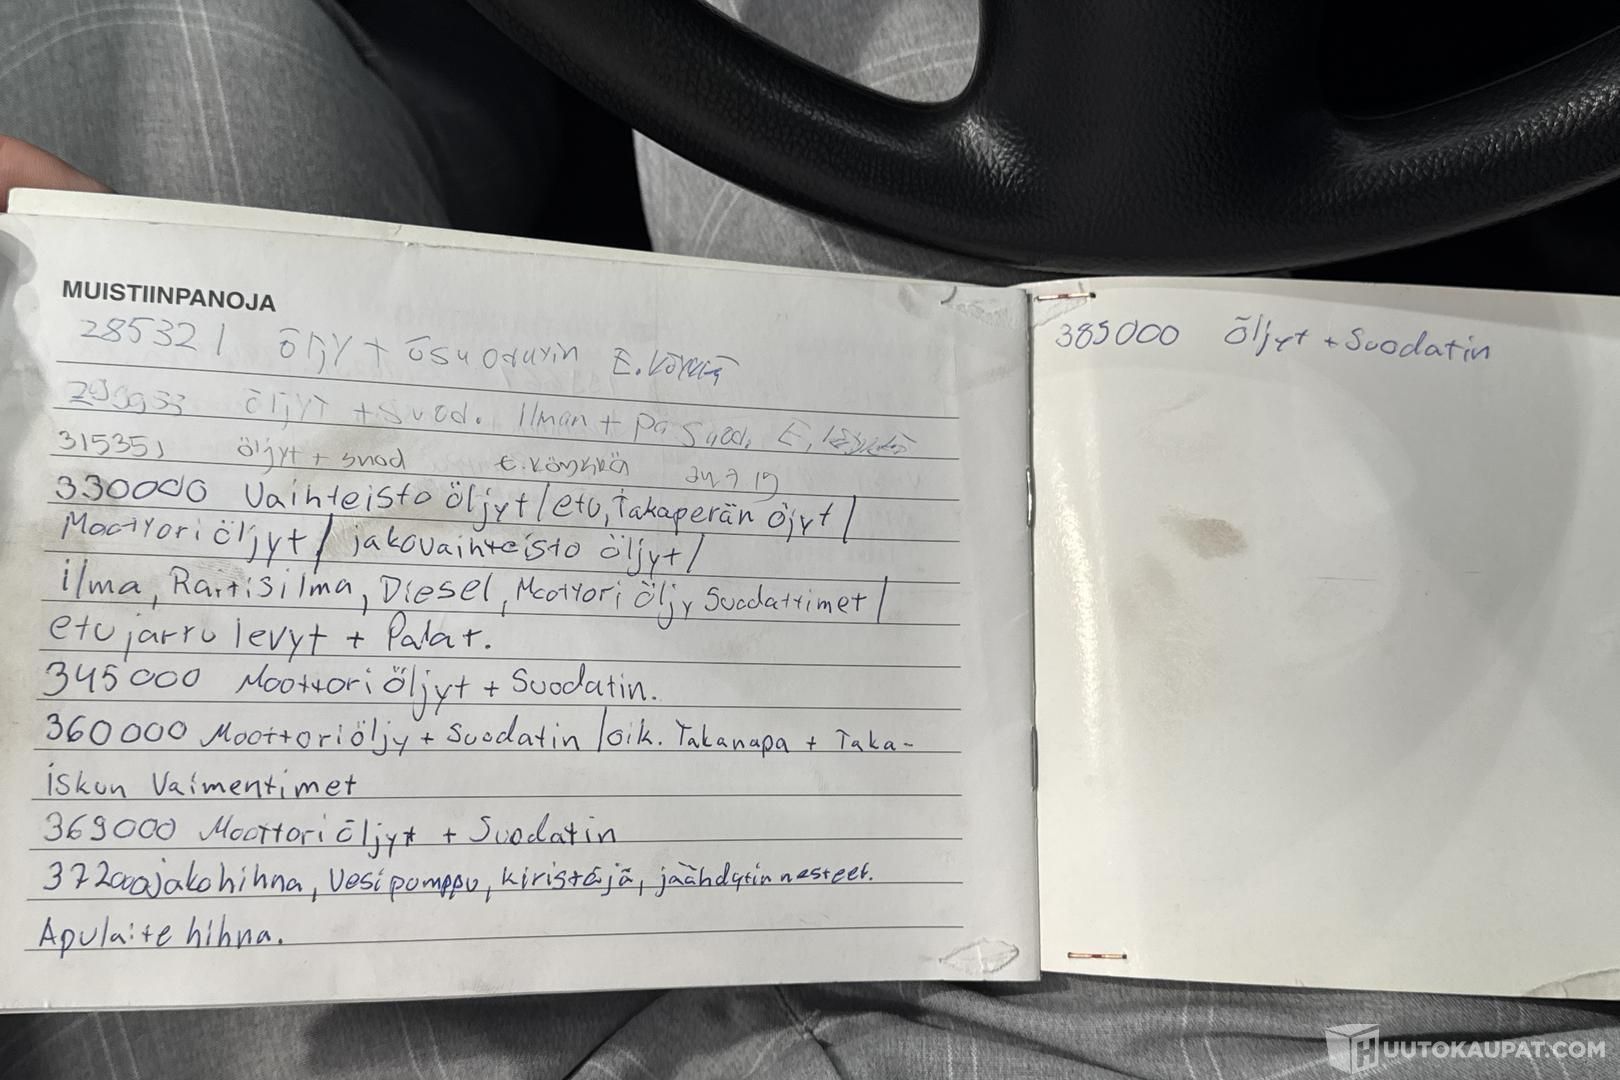 MUISTIINPANOJA
285321 öljy + ösuodatin E. Köykkä
299953 öljyt + suod. Ilman + Pa Suod. E.
315351 öljyt + suod E. Köykkä 24.7.19
330000 Vaihteisto öljyt / etu, Takaperän öjyt /
Moottori öljyt / jakovaihteisto öljyt /
ilma, Raitisilma, Diesel, Moottori öljy Suodattimet /
etujarru levyt + Palat.
345000 Moottori öljyt + Suodatin.
360000 Moottoriöljy + Suodatin / oik. Takanapa + Taka-
iskun Vaimentimet
369000 Moottori öljyt + Suodatin
372000 jakohihna, Vesipumppu, kiristäjä, jäähdytin nesteet.
Apulaite hihna.
385000 Öljyt + Suodatin
HUUTOKAUPAT.COM